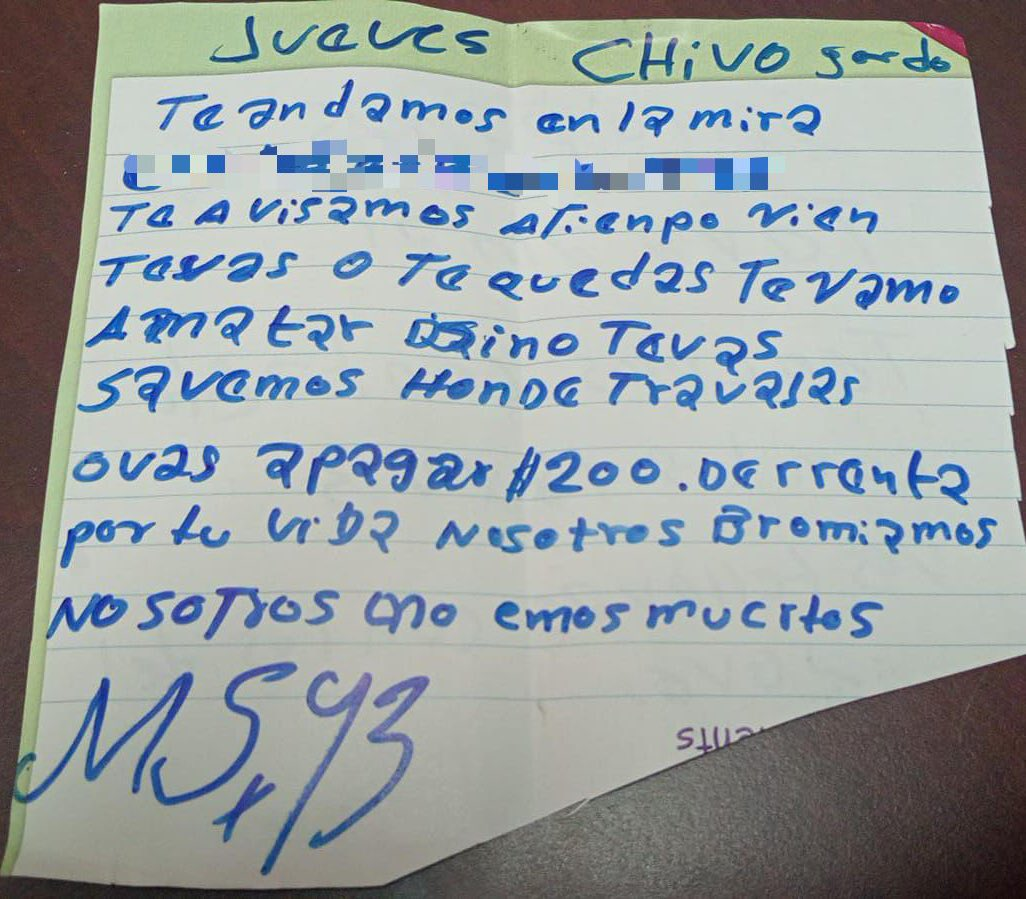 Jueves CHiVO gordo
Te andamos en la mira
Te Avisamos ATienpo vien
Tevas o Te quedas Te vamo
Amatar sino Tevas
savemos HonDe Travajas
ovas apagar $200. De rrenta
por tu viDa Nosotros Bromiamos
Nosotros no emos muertos
MS
ents